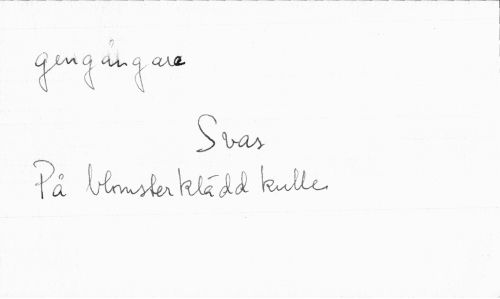 gengångare
Svar
På blomsterklädd kulle